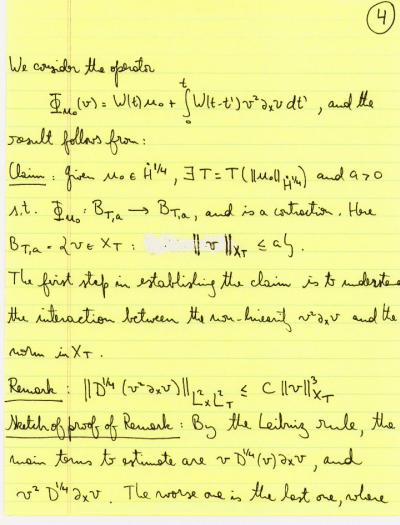 4
We consider the operator
Φ_{u₀}(v) = W(t)u₀ + ∫₀ᵗ W(t-t') v²∂ₓv dt' , and the
result follows from:
Claim: Given u₀ ∈ Ḣ^{1/4}, ∃ T = T(‖u₀‖_{Ḣ^{1/4}}) and a>0
s.t. Φ_{u₀} : B_{T,a} → B_{T,a}, and is a contraction. Here
B_{T,a} = {v ∈ X_T : ‖v‖_{X_T} ≤ a}.
The first step in establishing the claim is to understand
the interaction between the non-linearity v²∂ₓv and the
norm in X_T.
Remark: ‖D^{1/4}(v²∂ₓv)‖_{L²ₓL²_T} ≤ C‖v‖³_{X_T}
Sketch of proof of Remark: By the Leibniz rule, the
main terms to estimate are v D^{1/4}(v)∂ₓv, and
v² D^{1/4}∂ₓv. The worse one is the last one, where